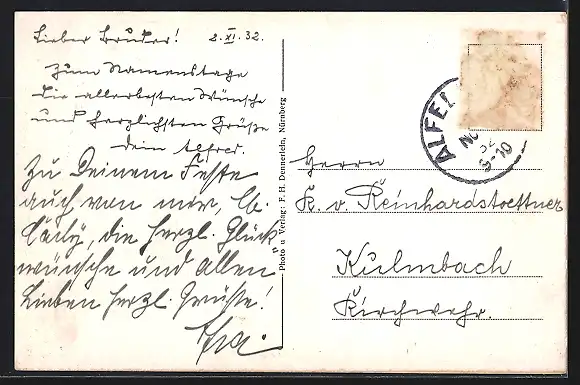 Lieber Bruder! 2. XI. 32.
Zum Namenstage
die allerbesten Wünsche
und herzlichsten Grüße
Dein Alfred.
Zu Deinem Feste
auch von mir, lb.
die herzl. Glück-
wünsche und allen
Lieben herzl. Grüße!
Photo u Verlag: F. H. Dennerlein, Nürnberg
ALFE
9-10
Herrn
K. v. Reinhardstoettner
Kulmbach
Kirchwehr.